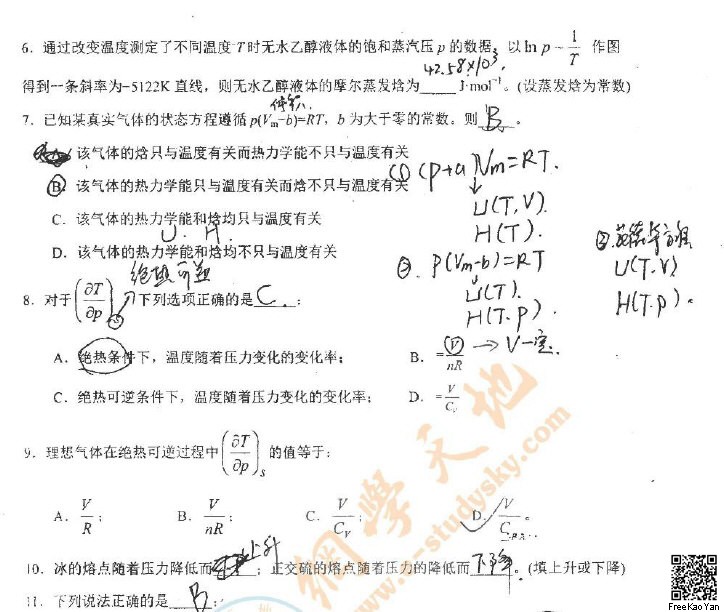 6. 通过改变温度测定了不同温度 T 时无水乙醇液体的饱和蒸汽压 p 的数据，以 ln p ~ 1/T 作图
42.58×10³
得到一条斜率为-5122K 直线，则无水乙醇液体的摩尔蒸发焓为____ J·mol⁻¹。(设蒸发焓为常数)
7. 已知某真实气体的状态方程遵循 p(Vm-b)=RT，b 为大于零的常数。则 B 。
该气体的焓只与温度有关而热力学能不只与温度有关
① (p+a)Vm=RT.
B. 该气体的热力学能只与温度有关而焓不只与温度有关
U(T,V).
C. 该气体的热力学能和焓均只与温度有关
H(T).
U . H.
D. 该气体的热力学能和焓均不只与温度有关
② p(Vm-b)=RT
U(T.V)
绝热可逆
U(T).
8. 对于(∂T/∂p)s 下列选项正确的是 C ：
H(T.p).
H(T.p).
A. 绝热条件下，温度随着压力变化的变化率；
B. =V/nR → V一定.
C. 绝热可逆条件下，温度随着压力变化的变化率；
D. =V/Cv
9. 理想气体在绝热可逆过程中(∂T/∂p)s 的值等于：
A. V/R；
B. V/nR；
C. V/Cv；
D. V/C 。
上升
10. 冰的熔点随着压力降低而 ；正交硫的熔点随着压力的降低而 下降 。(填上升或下降)
11. 下列说法正确的是 B ：
網學天地
www.e-studysky.com
FreeKaoYan